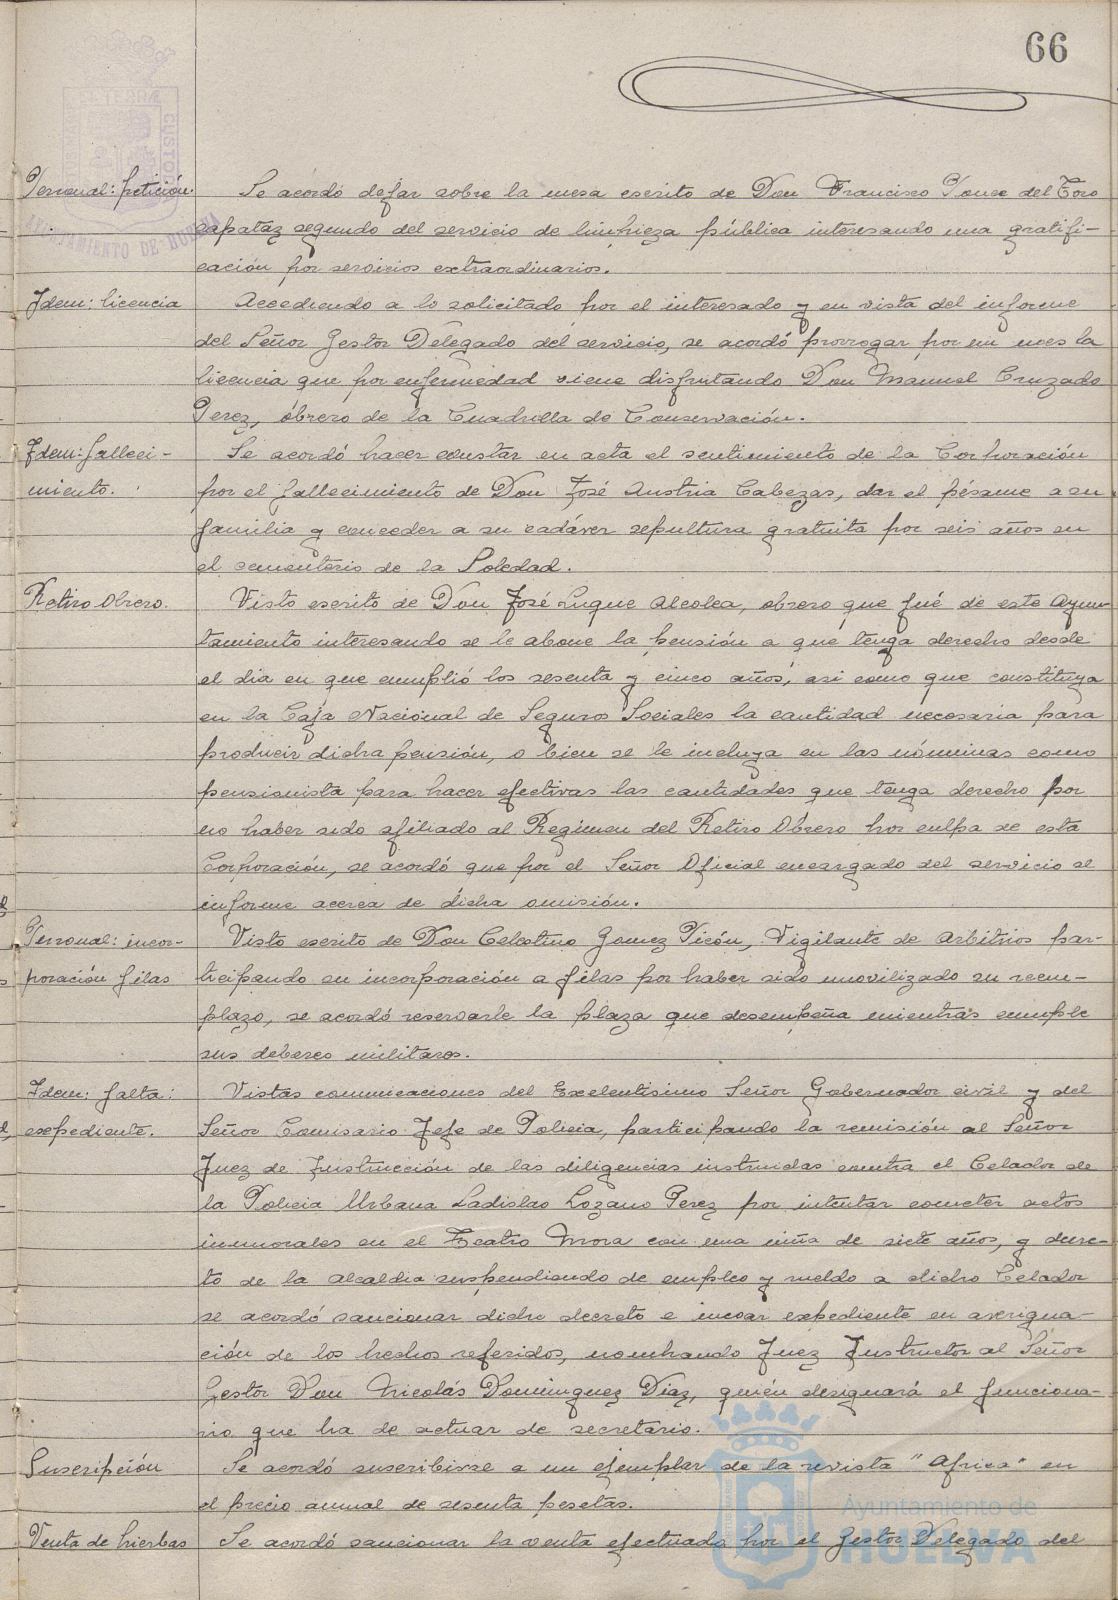 66
Personal: petición.
Se acordó dejar sobre la mesa escrito de Don Francisco Ponce del Toro
capataz segundo del servicio de limpieza pública interesando una gratifi-
cación por servicios extraordinarios.
Idem: licencia
Accediendo a lo solicitado por el interesado y en vista del informe
del Señor Gestor Delegado del servicio, se acordó prorrogar por un mes la
licencia que por enfermedad viene disfrutando Don Manuel Cruzado
Perez, obrero de la Cuadrilla de Conservación.
Idem: falleci-
miento.
Se acordó hacer constar en acta el sentimiento de la Corporación
por el fallecimiento de Don José Austria Cabezas, dar el pésame a su
familia y conceder a su cadáver sepultura gratuita por seis años en
el cementerio de la Soledad.
Retiro Obrero.
Visto escrito de Don José Luque Alcolea, obrero que fué de este Ayun-
tamiento interesando se le abone la pensión a que tenga derecho desde
el dia en que cumplió los sesenta y cinco años, asi como que constituya
en la Caja Nacional de Seguros Sociales la cantidad necesaria para
producir dicha pensión, o bien se le incluya en las nóminas como
pensionista para hacer efectivas las cantidades que tenga derecho por
no haber sido afiliado al Regimen del Retiro Obrero por culpa de esta
Corporación, se acordó que por el Señor Oficial encargado del servicio se
informe acerca de dicha omisión.
Personal: incor-
poración filas
Visto escrito de Don Celestino Gomez Picón, Vigilante de Arbitrios par-
ticipando su incorporación a filas por haber sido movilizado su reem-
plazo, se acordó reservarle la plaza que desempeña mientras cumple
sus deberes militares.
Idem: falta:
expediente.
Vistas comunicaciones del Excelentisimo Señor Gobernador civil y del
Señor Comisario Jefe de Policia, participando la remisión al Señor
Juez de Instrucción de las diligencias instruidas contra el Celador de
la Policia Urbana Ladislao Lozano Perez por intentar cometer actos
inmorales en el Teatro Mora con una niña de siete años, y decre-
to de la Alcaldia suspendiendo de empleo y sueldo a dicho Celador
se acordó sancionar dicho decreto e incoar expediente en averigua-
ción de los hechos referidos, nombrando Juez Instructor al Señor
Gestor Don Nicolás Dominguez Diaz, quién designará el funciona-
rio que ha de actuar de secretario.
Suscripción
Se acordó suscribirse a un ejemplar de la revista "Africa" en
el precio anual de sesenta pesetas.
Venta de hierbas
Se acordó sancionar la venta efectuada por el Gestor Delegado del
Ayuntamiento de
HUELVA
AYUNTAMIENTO DE HUELVA